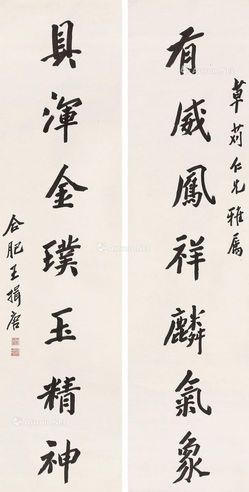 草蒭仁兄雅属
有威鳳祥麟氣象
具渾金璞玉精神
合肥王揖唐